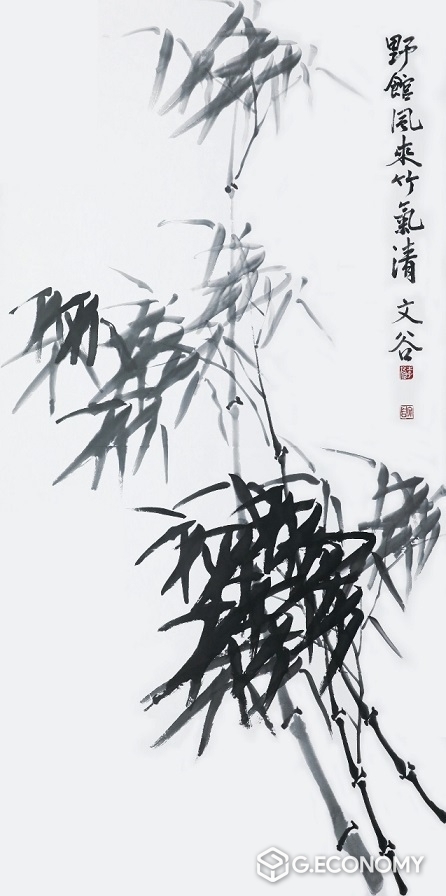 野館風來竹氣清 文谷
G.ECONOMY